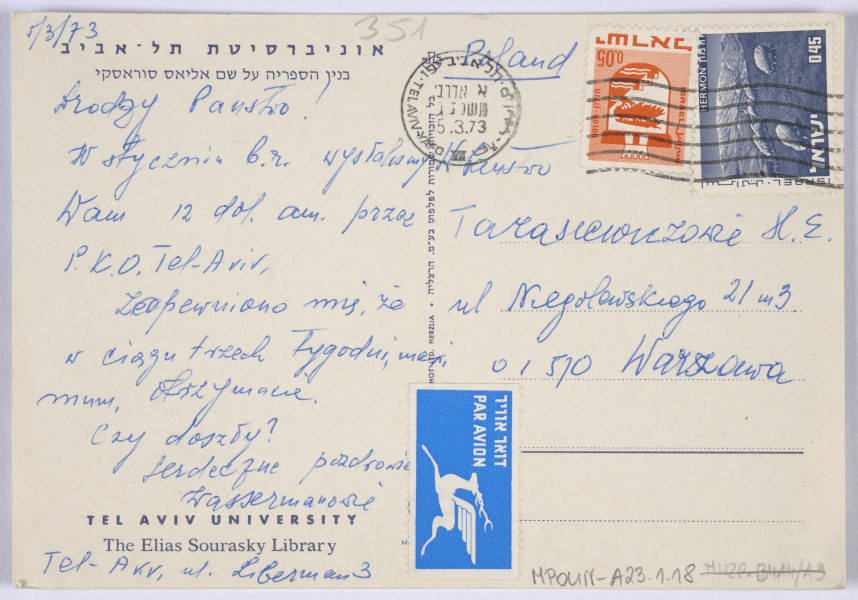 5/3/73
351
אוניברסיטת תל-אביב
בנין הספריה על שם אליאס סוראסקי
Drodzy Państwo!
W styczniu b.r. wysłaliśmy
Wam 12 dol. am. przez
P.K.O. Tel-Aviv,
Zapewniono mię, że
w ciągu trzech tygodni, maxi
mum, otrzymacie.
Czy doszły?
Serdeczne pozdrowie
Wassermanowie
TEL AVIV UNIVERSITY
The Elias Sourasky Library
Tel-Aviv, ul. Liberman 3
HERZLIA
Poland
תל-אביב-יפו
TEL AVIV
5.3.73
ישראל
0.05
ISRAEL
HERMON
0.45
ישראל
W. Państwo
Tarasiewiczowie H. E.
ul Niegolewskiego 21 m 3
01510 Warszawa
דואר אויר
PAR AVION
MPOLIN-A23.1.18